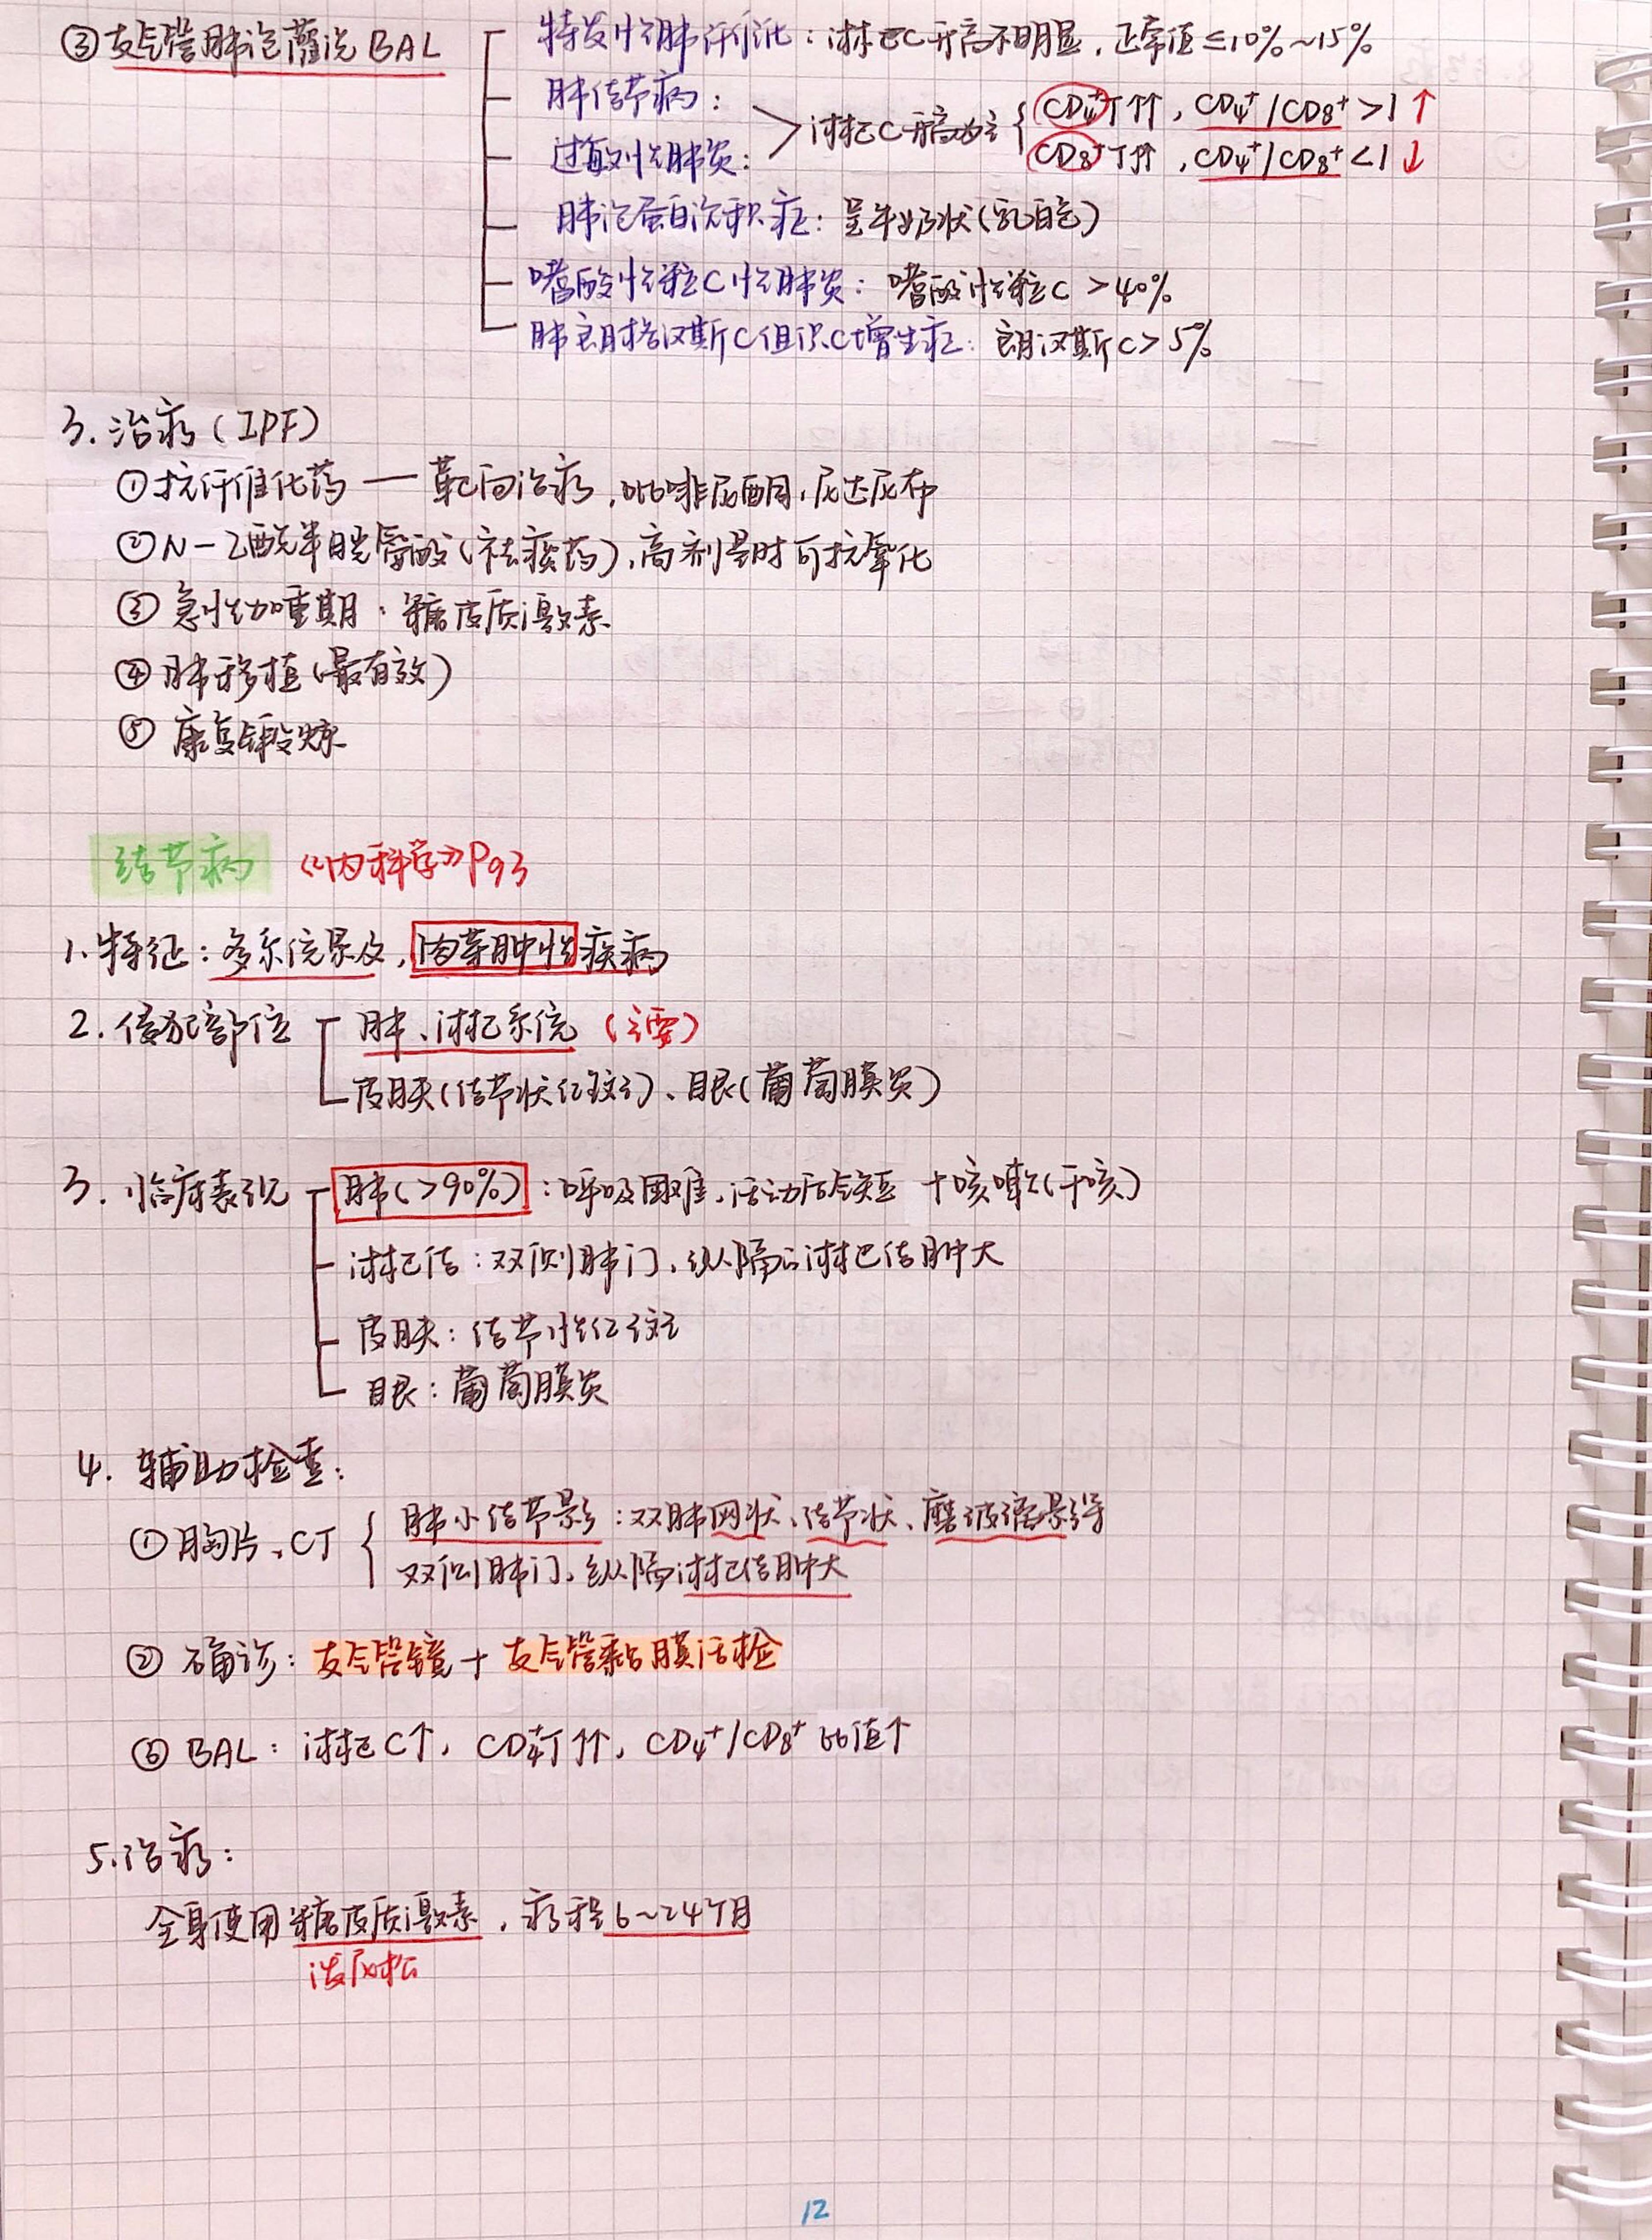 ③支气管肺泡灌洗BAL
特发性肺纤维化：淋巴C升高不明显，正常值≤10%~15%
肺结节病：
过敏性肺炎：
淋巴C升高为主
CD4⁺T↑↑，CD4⁺/CD8⁺>1↑
CD8⁺T↑↑，CD4⁺/CD8⁺<1↓
肺泡蛋白沉积症：呈牛奶状(乳白色)
嗜酸性粒C性肺炎：嗜酸性粒C>40%
肺朗格汉斯C组织C增生症：朗汉斯C>5%
3.治疗(IPF)
①抗纤维化药—靶向治疗，吡啡尼酮，尼达尼布
②N-乙酰半胱氨酸(祛痰药)，高剂量时可抗氧化
③急性加重期：糖皮质激素
④肺移植(最有效)
⑤康复锻炼
结节病 《内科学》P93
1.特征：多系统累及，肉芽肿性疾病
2.侵犯部位
肺、淋巴系统(主要)
皮肤(结节状红纹)、眼(葡萄膜炎)
3.临床表现
肺(>90%)：呼吸困难，活动后气短+咳嗽(干咳)
淋巴结：双侧肺门、纵隔淋巴结肿大
皮肤：结节性红纹
眼：葡萄膜炎
4.辅助检查：
①胸片、CT
肺小结节影：双肺网状、结节状、磨玻璃影
双侧肺门、纵隔淋巴结肿大
②确诊：支气管镜+支气管黏膜活检
③BAL：淋巴C↑，CD4⁺T↑↑，CD4⁺/CD8⁺比值↑
5.治疗：
全身使用糖皮质激素，疗程6~24个月
泼尼松
12